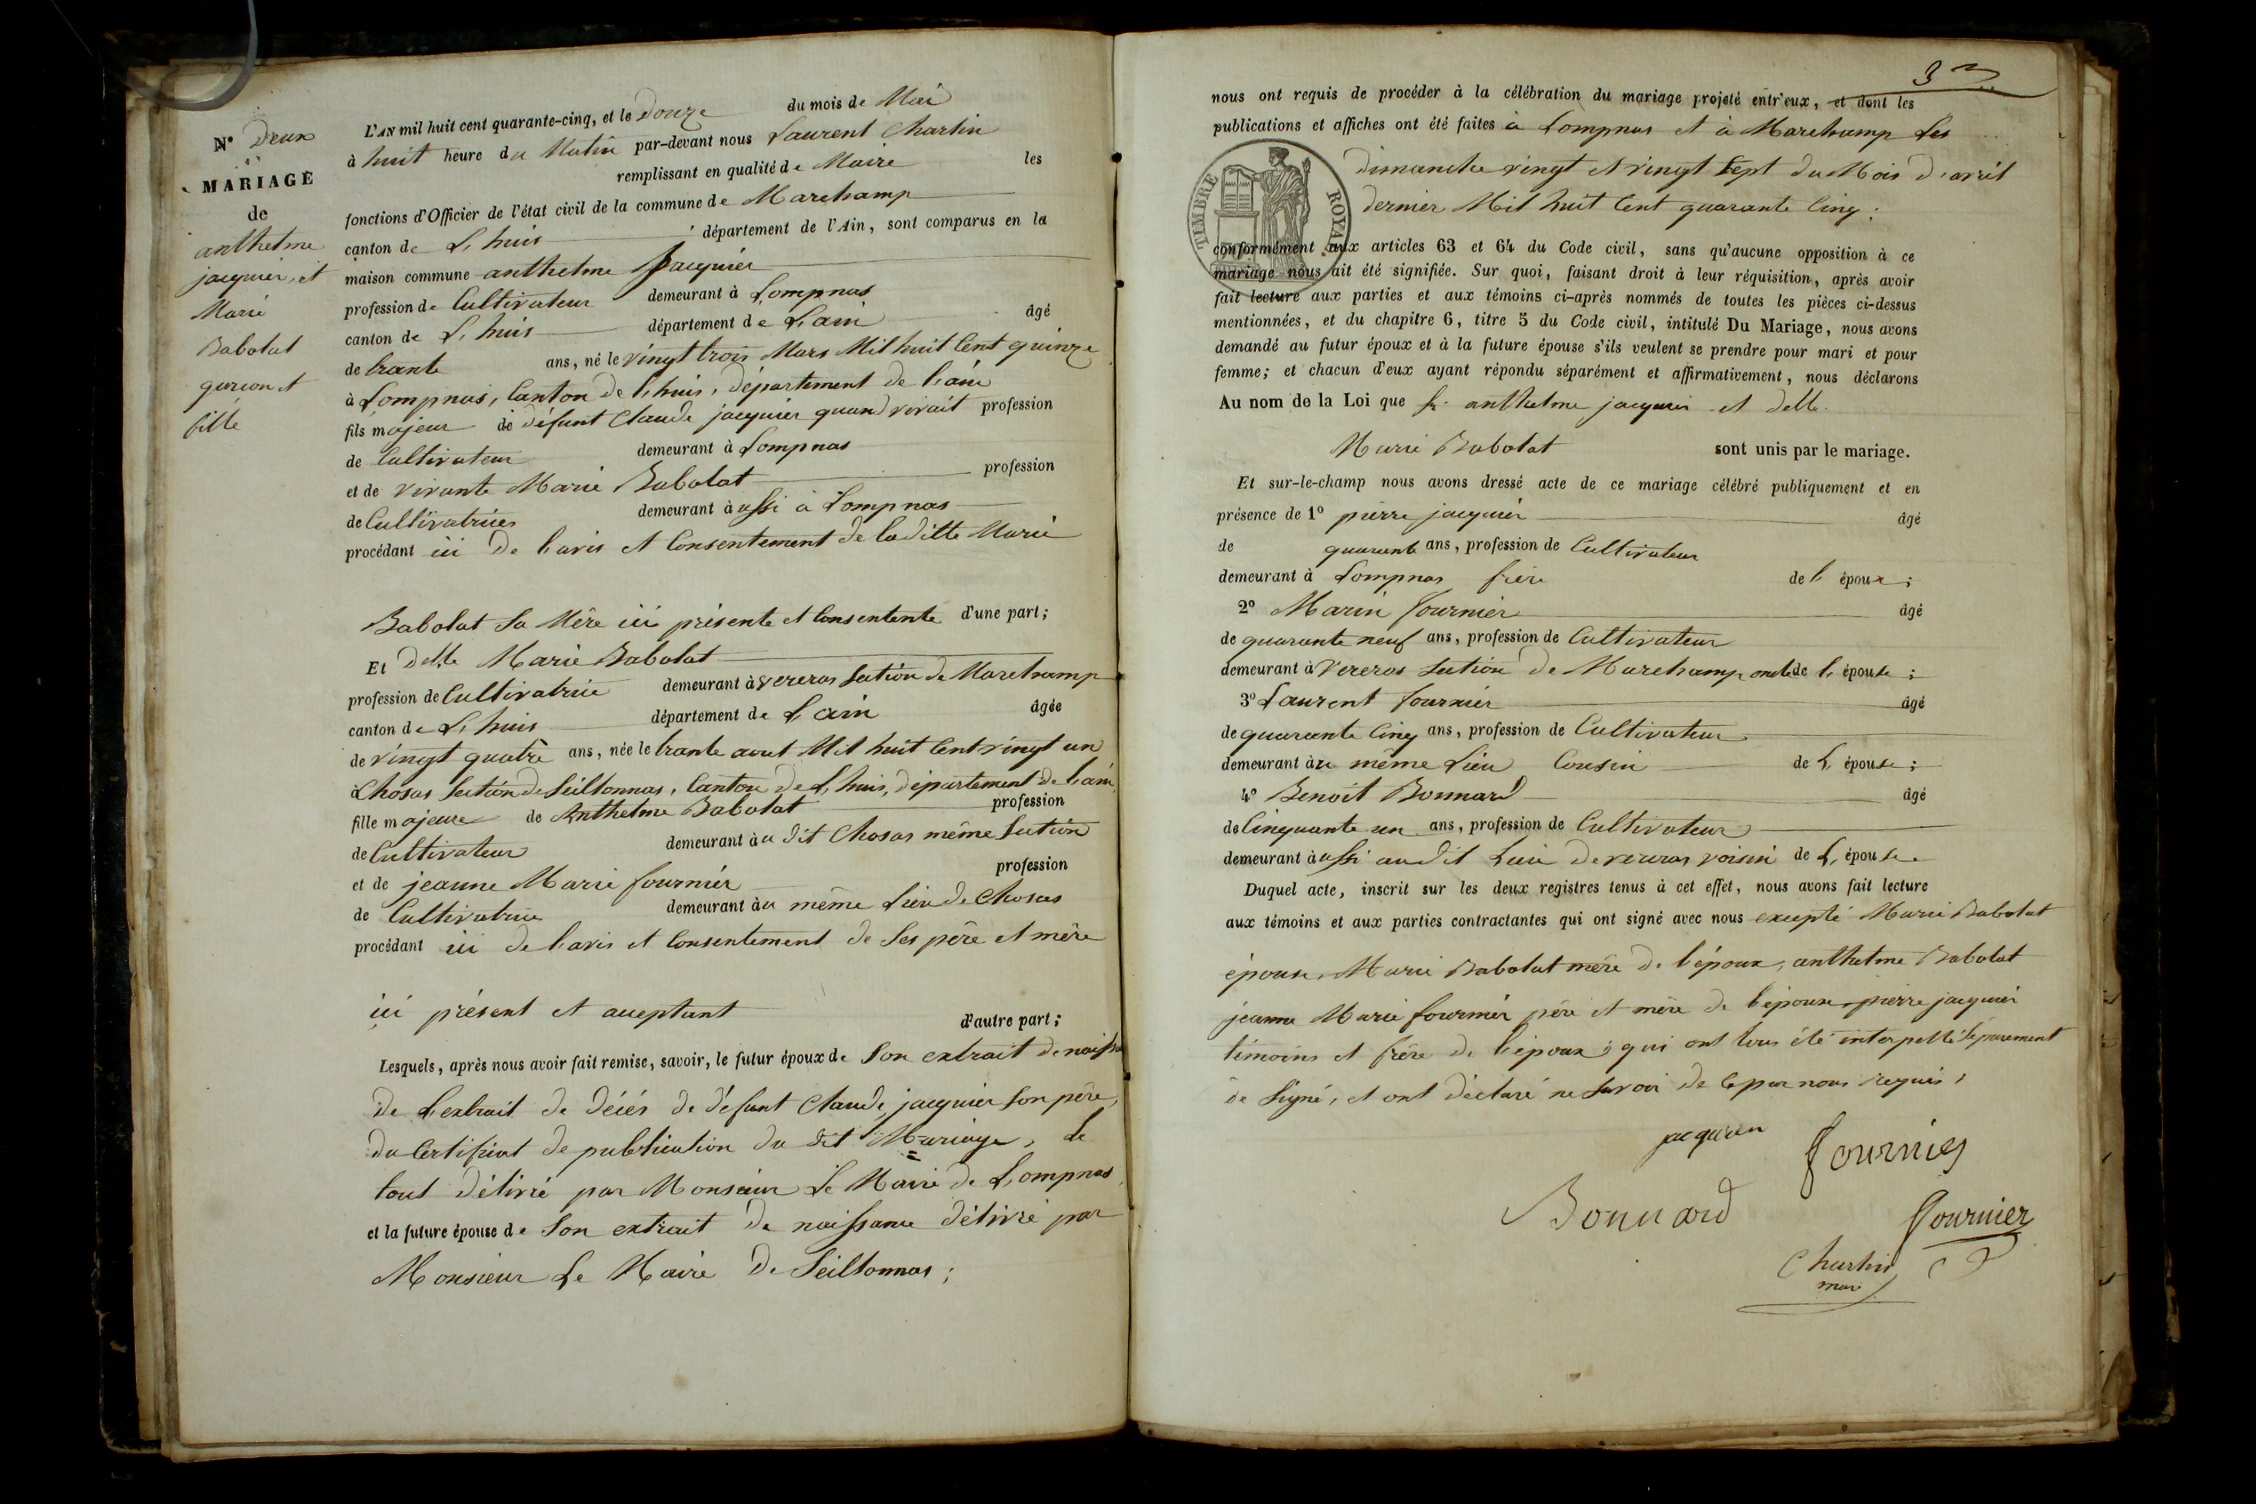 N° Deux
MARIAGE
de
anthelme
jacquier, et
Marie
Babolat
garcon et
fille
L'AN mil huit cent quarante-cinq, et le Douze du mois de Mai
à huit heure du Matin par-devant nous Laurent Charlin
remplissant en qualité de Maire les
fonctions d'Officier de l'état civil de la commune de Marchamp
canton de L'huis département de l'Ain, sont comparus en la
maison commune anthelme Jacquier
profession de Cultivateur demeurant à Lompnas
canton de L'huis département de L'ain âgé
de trente ans, né le vingt trois Mars Mil huit Cent quinze
à Lompnas, Canton de L'huis, département de L'ain
fils majeur de défunt Claude jacquier quand vivait profession
de Cultivateur demeurant à Lompnas
et de vivante Marie Babolat profession
de Cultivatrices demeurant aussi à Lompnas
procédant ici de L'avis et Consentement de la ditte Marie
Babolat Sa Mère ici présente et Consentente d'une part;
Et delle Marie Babolat
profession de Cultivatrice demeurant à vereras Section de Marchamp
canton de L'huis département de L'ain âgée
de vingt quatre ans, née le trante aout Mil huit Cent vingt un
à Chosas Section de Seillonnas, Canton de L'huis, département de L'ain
fille majeure de Anthelme Babolat profession
de Cultivateur demeurant au dit Chosas même Section
et de jeanne Marie fournier profession
de Cultivatrice demeurant au même Lieu de Chosas
procédant ici de L'avis et Consentement de Ses père et mère
ici présent et acceptant d'autre part;
Lesquels, après nous avoir fait remise, savoir, le futur époux de Son extrait de naissa
de L'extrait de décés de défunt Claude jacquier Son père,
du Certificat de publication du dit Mariage, le
tout délivré par Monsieur Le Maire de Lompnas,
et la future épouse de Son extrait de naissance délivré par
Monsieur Le Maire de Seillonnas;
3
nous ont requis de procéder à la célébration du mariage projeté entr'eux, et dont les
publications et affiches ont été faites à Lompnas et à Marchamp Les
TIMBRE ROYAL
dimanche vingt et vingt Sept du Mois d'avril
dernier Mil huit Cent quarante Cinq;
conformément aux articles 63 et 64 du Code civil, sans qu'aucune opposition à ce
mariage nous ait été signifiée. Sur quoi, faisant droit à leur réquisition, après avoir
fait lecture aux parties et aux témoins ci-après nommés de toutes les pièces ci-dessus
mentionnées, et du chapitre 6, titre 5 du Code civil, intitulé Du Mariage, nous avons
demandé au futur époux et à la future épouse s'ils veulent se prendre pour mari et pour
femme; et chacun d'eux ayant répondu séparément et affirmativement, nous déclarons
Au nom de la Loi que Sr anthelme jacquier et delle
Marie Babolat sont unis par le mariage.
Et sur-le-champ nous avons dressé acte de ce mariage célébré publiquement et en
présence de 1° pierre jacquier âgé
de quarante ans, profession de Cultivateur
demeurant à Lompnas frère de l'époux;
2° Marin fournier âgé
de quarante neuf ans, profession de Cultivateur
demeurant à Vereras Section de Marchamp oncle de L'épouse;
3° Laurent fournier âgé
de quarante Cinq ans, profession de Cultivateur
demeurant au même Lieu Cousin de L'épouse;
4° Benoit Bonnard âgé
de Cinquante un ans, profession de Cultivateur
demeurant aussi au dit Lieu de vereras voisin de L'épouse.
Duquel acte, inscrit sur les deux registres tenus à cet effet, nous avons fait lecture
aux témoins et aux parties contractantes qui ont signé avec nous excepté Marie Babolat
épouse, Marie Babolat mère de l'époux, anthelme Babolat
jeanne Marie fournier père et mère de l'épouse, pierre jacquier
témoins et frère de l'époux; qui ont tous été interpellé Séparement
de Signé, et ont déclaré ne Savoir de Ce par nous requis,
jacquier
Fournier
Bonnard
fournier
Charlin
maire